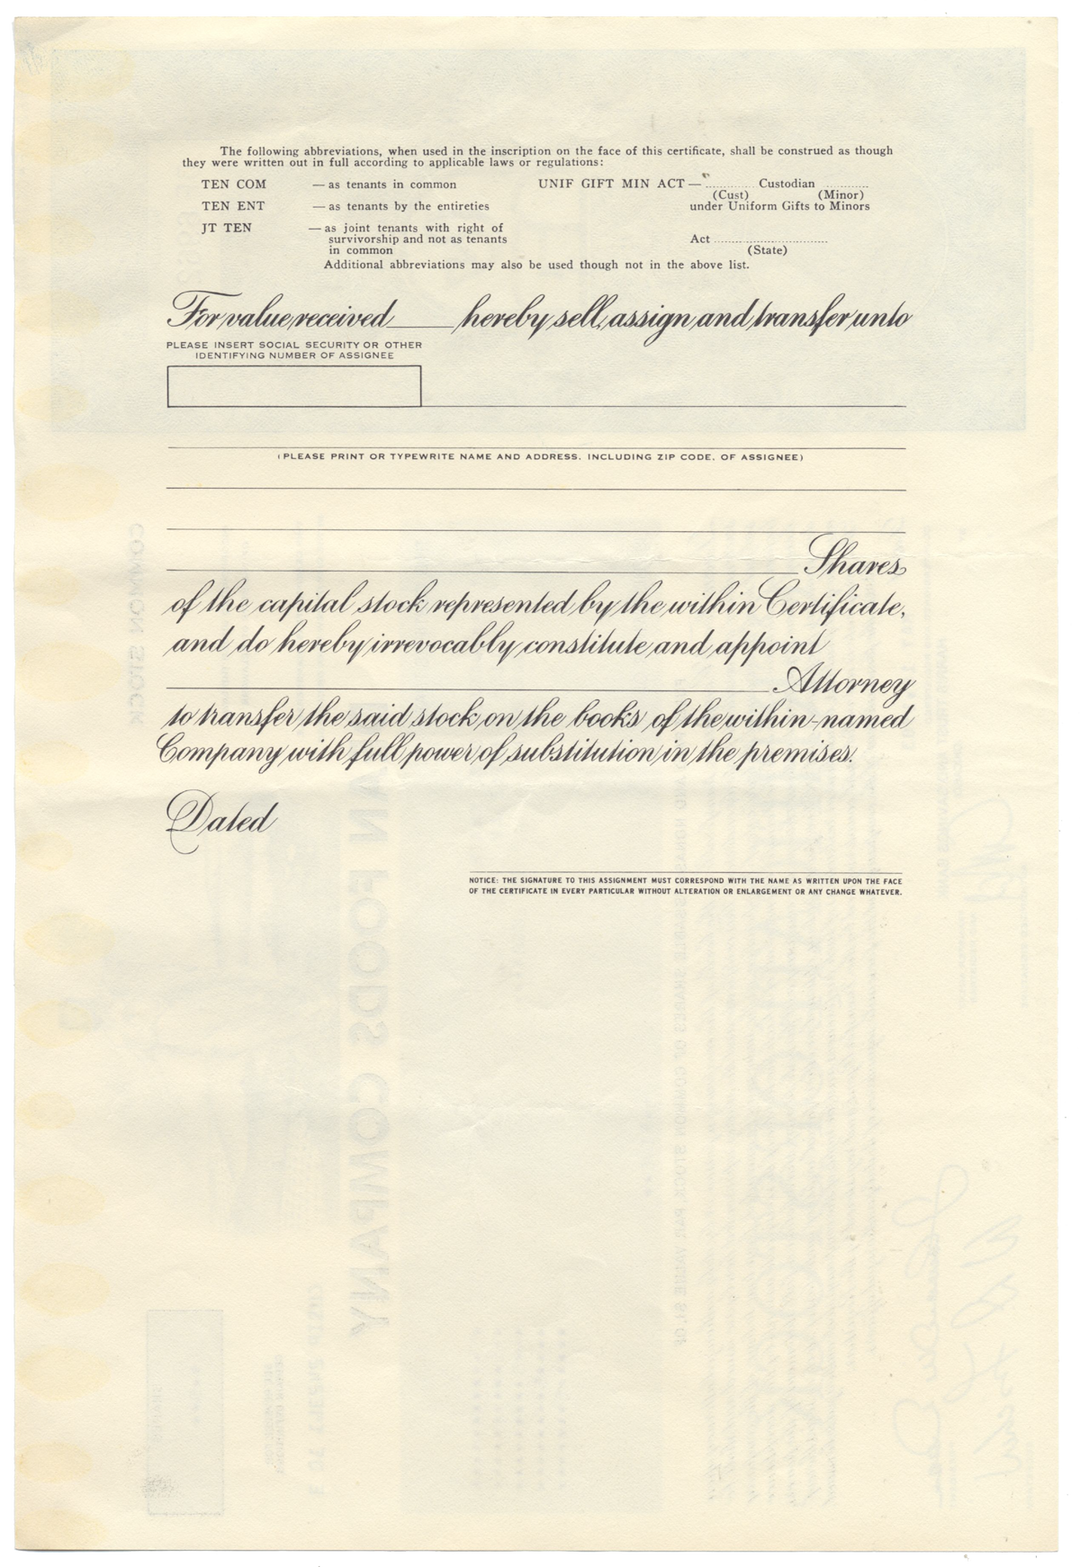 The following abbreviations, when used in the inscription on the face of this certificate, shall be construed as though
they were written out in full according to applicable laws or regulations:
TEN COM — as tenants in common UNIF GIFT MIN ACT — ............ Custodian ............
(Cust) (Minor)
TEN ENT — as tenants by the entireties under Uniform Gifts to Minors
JT TEN — as joint tenants with right of
survivorship and not as tenants Act ..............................
in common (State)
Additional abbreviations may also be used though not in the above list.
For value received ____ hereby sell, assign and transfer unto
PLEASE INSERT SOCIAL SECURITY OR OTHER
IDENTIFYING NUMBER OF ASSIGNEE
(PLEASE PRINT OR TYPEWRITE NAME AND ADDRESS, INCLUDING ZIP CODE, OF ASSIGNEE)
Shares
of the capital stock represented by the within Certificate,
and do hereby irrevocably constitute and appoint
Attorney
to transfer the said stock on the books of the within-named
Company with full power of substitution in the premises.
Dated
NOTICE: THE SIGNATURE TO THIS ASSIGNMENT MUST CORRESPOND WITH THE NAME AS WRITTEN UPON THE FACE
OF THE CERTIFICATE IN EVERY PARTICULAR WITHOUT ALTERATION OR ENLARGEMENT OR ANY CHANGE WHATEVER.
COMMON STOCK
FOODS COMPANY